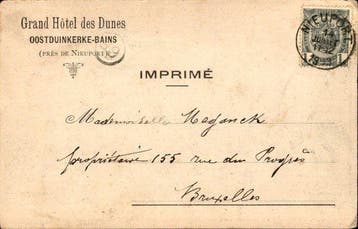 Grand Hôtel des Dunes
OOSTDUINKERKE-BAINS
(PRÈS DE NIEUPORT)
NIEUPORT
IMPRIMÉ
Mademoiselle Meganck
propriétaire 155 rue du Progrès
Bruxelles